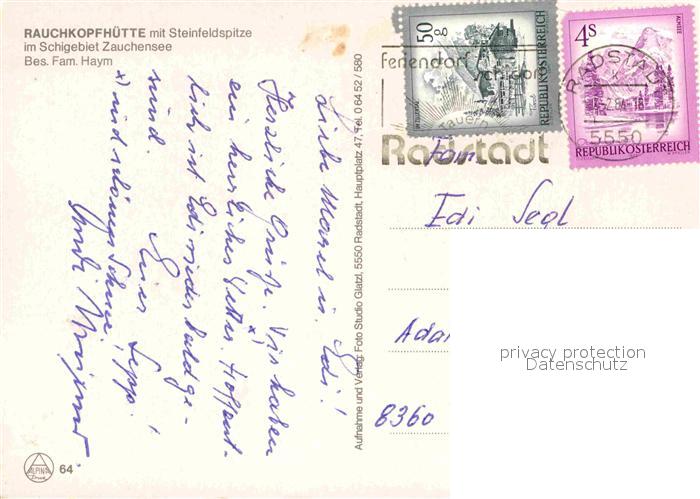 RAUCHKOPFHÜTTE mit Steinfeldspitze
im Schigebiet Zauchensee
Bes. Fam. Haym
Liebe Maria u. Edi!
Herzliche Grüße. Wir haben
ein herrliches Wetter x). Hoffent-
lich ist Edi wieder bald ge-
sund.
Euer Sepp!
x) und schönen Schnee!
Aufnahme und Verlag: Foto Studio Glatzl, 5550 Radstadt, Hauptplatz 47, Tel. 0 64 52 / 580
50 g
REPUBLIK ÖSTERREICH
4 S
ALMSEE
REPUBLIK ÖSTERREICH
Feriendorf
Radstadt
RADSTADT
5550
Fam
Edi Segl
8360
privacy protection
Datenschutz
ALPINA
Druck
64